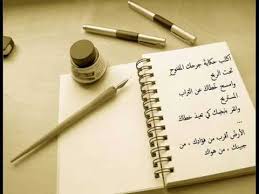 أكتب حكاية جرحك المفتوح
تحت الريح
وامسح خطاك عن التراب
المستريح
وانقر بنعشك كي تعيد خطاك
...
الأرض أقرب من فؤادك ، من
جبينك ، من هواك